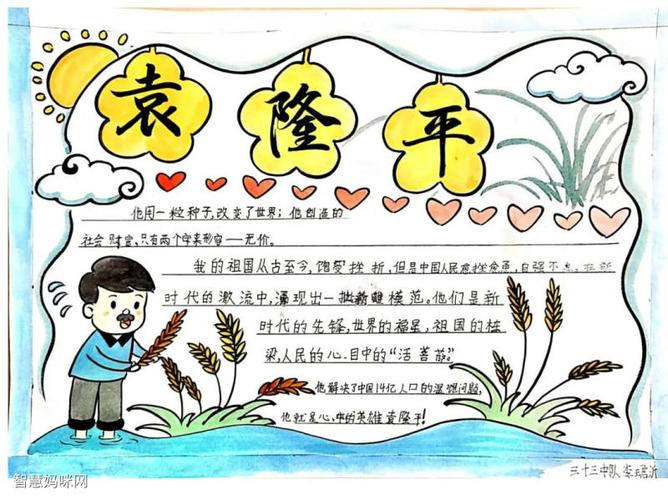 袁隆平
他用一粒种子,改变了世界;他创造的
社会财富,只有两个字来形容——无价。
我的祖国从古至今,饱受挫折,但是中国人民愈挫愈勇,自强不息,在新
时代的激流中,涌现出一批新模范。他们是新
时代的先锋,世界的福星,祖国的栋
梁,人民的心目中的“活菩萨”。
他解决了中国14亿人口的温饱问题,
他就是心中的英雄袁隆平!
三十三中队 李
智慧妈咪网